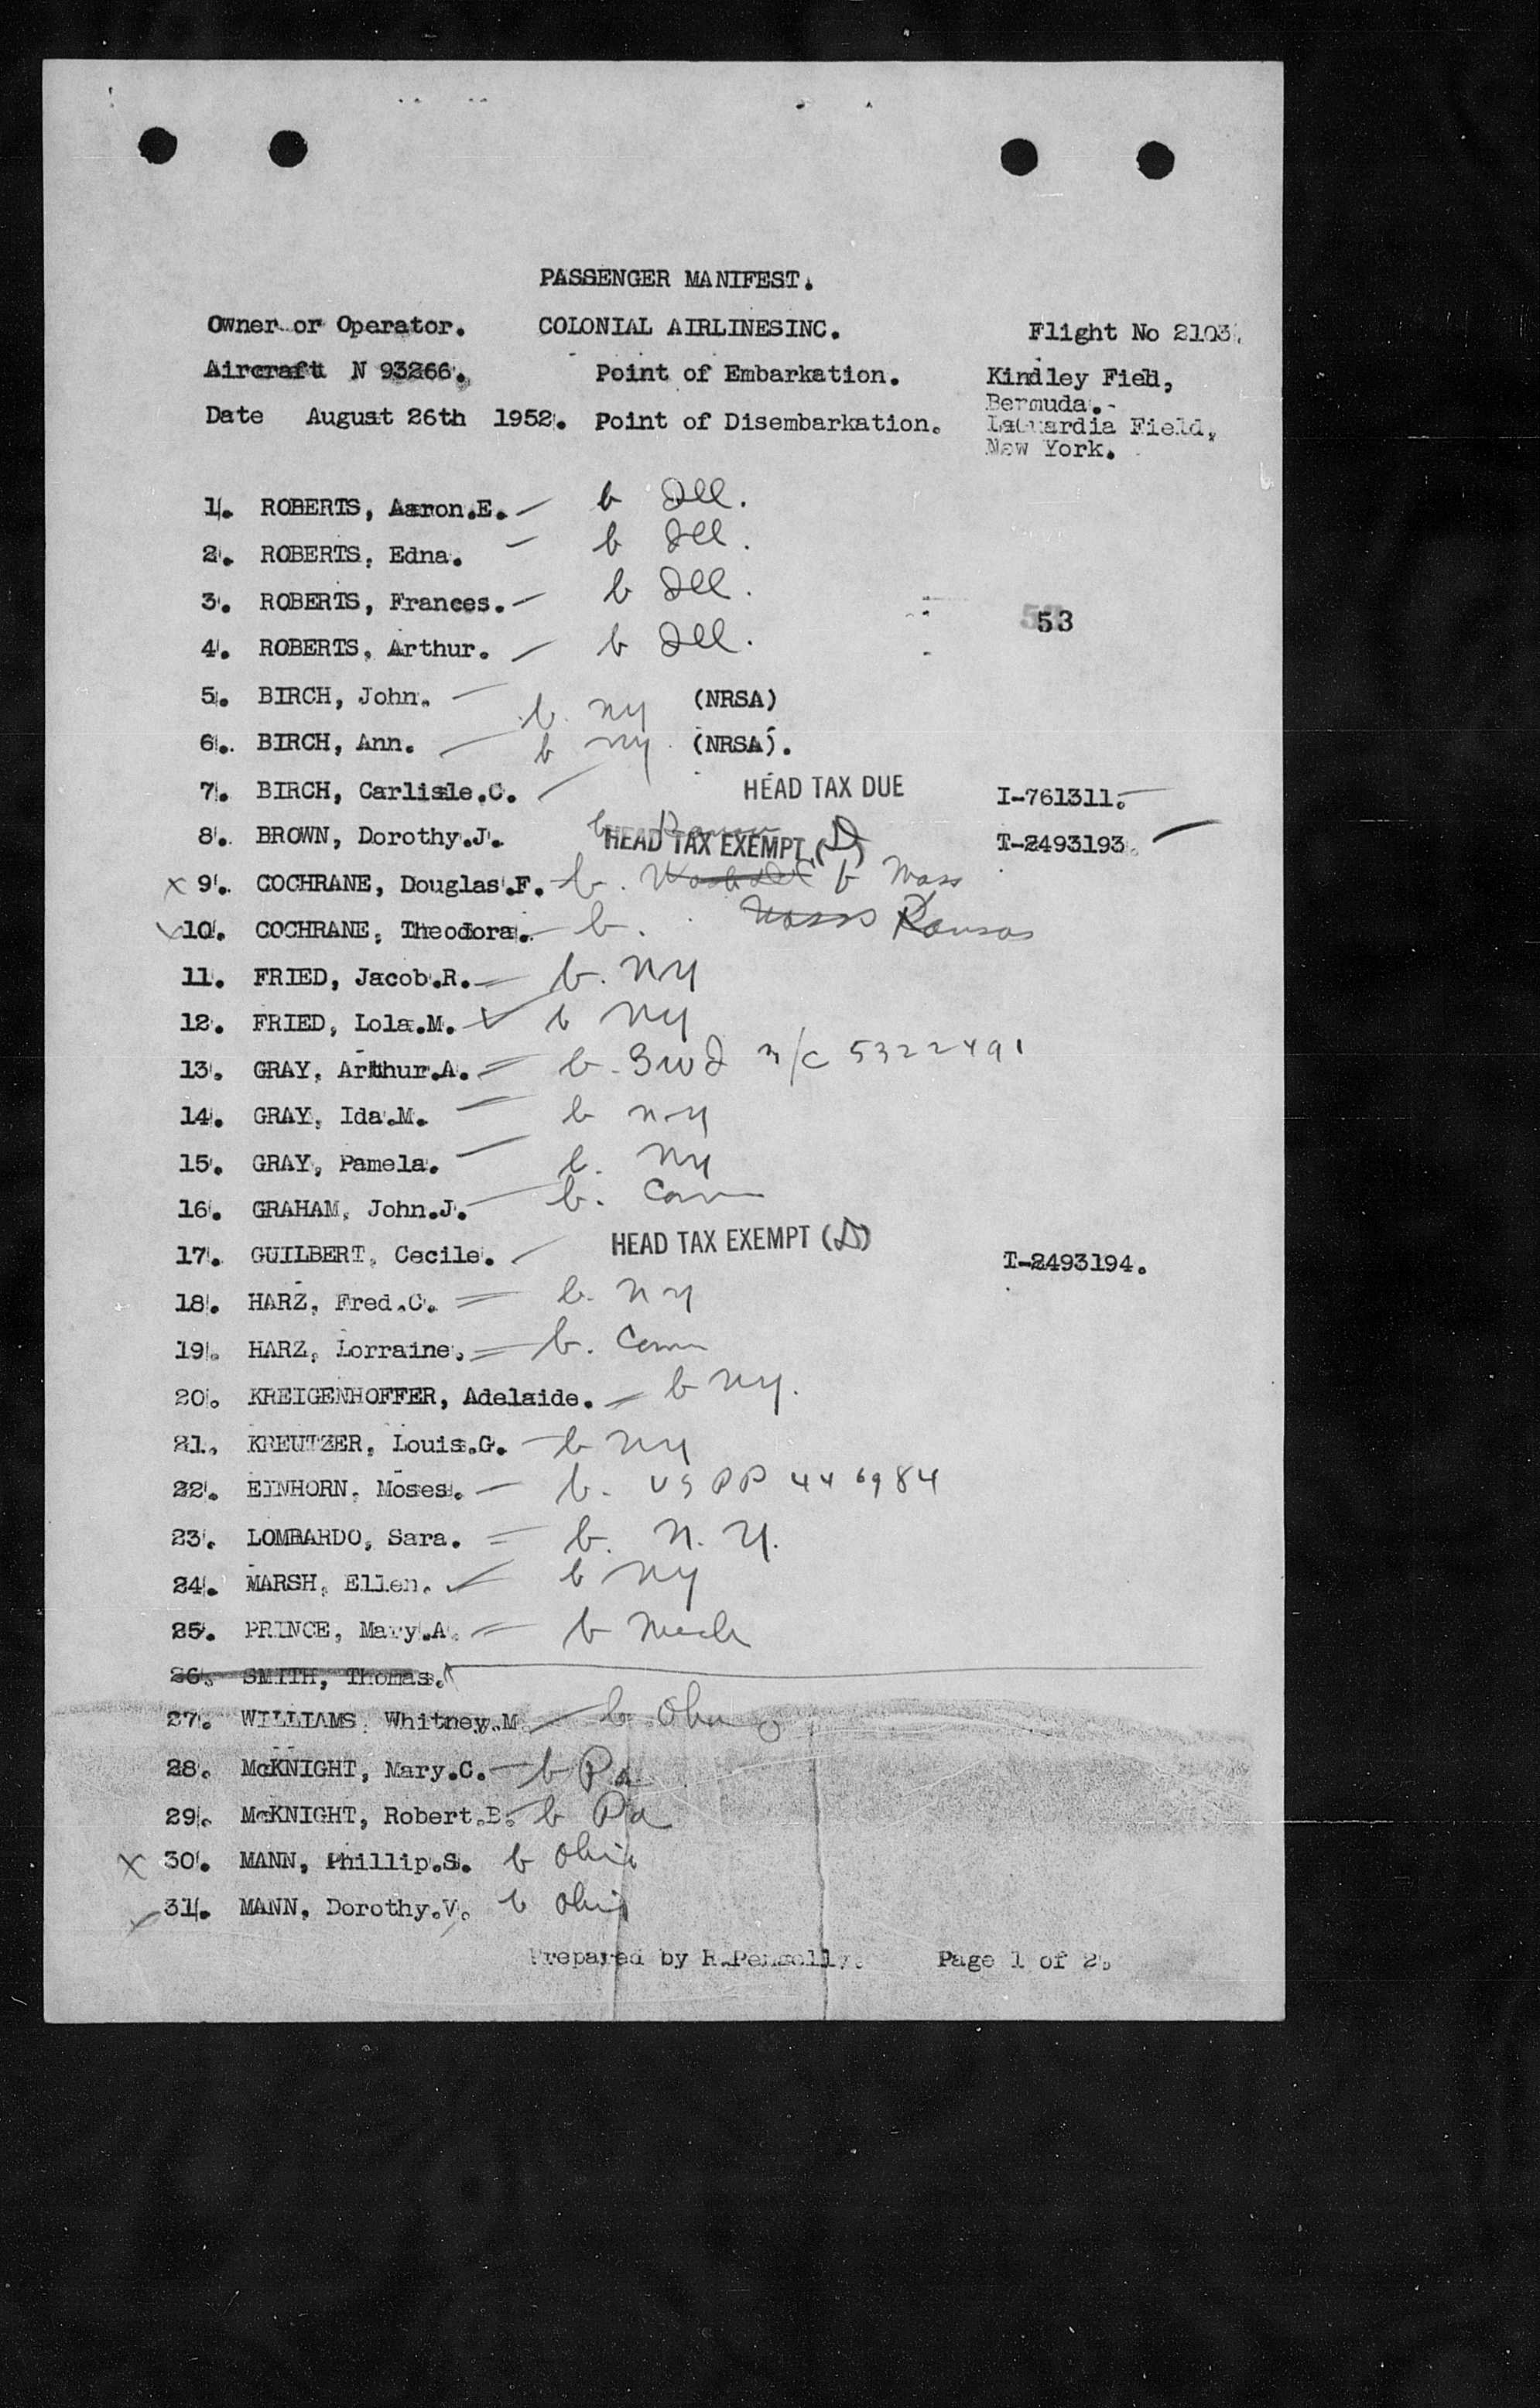 PASSENGER MANIFEST.
Owner or Operator. COLONIAL AIRLINESINC. Flight No 2103.
Aircraft N 93266. Point of Embarkation. Kindley Field,
Bermuda.-
Date August 26th 1952. Point of Disembarkation. LaGuardia Field,
New York.
1. ROBERTS, Aaron.E. b Ill.
2. ROBERTS, Edna. b Ill.
3. ROBERTS, Frances. b Ill.
53
4. ROBERTS, Arthur. b Ill.
5. BIRCH, John. b. NY (NRSA)
6. BIRCH, Ann. b NY (NRSA).
7. BIRCH, Carlisle.C. HEAD TAX DUE I-761311.
8. BROWN, Dorothy.J. HEAD TAX EXEMPT (D) T-2493193.
x 9. COCHRANE, Douglas.F. b. b Mass
10. COCHRANE, Theodora. b. Mass Kansas
11. FRIED, Jacob.R. b. NY
12. FRIED, Lola.M. b NY
13. GRAY, Arthur.A. b. n/c 5322491
14. GRAY, Ida.M. b NY
15. GRAY, Pamela. b. NY
16. GRAHAM, John.J. b. Conn
17. GUILBERT, Cecile. HEAD TAX EXEMPT (D) T-2493194.
18. HARZ, Fred.C. b. NY
19. HARZ, Lorraine. b. Conn
20. KREIGENHOFFER, Adelaide. b NY.
21. KREUTZER, Louis.G. b NY
22. EINHORN, Moses. b. US PP 446984
23. LOMBARDO, Sara. b. N.Y.
24. MARSH, Ellen. b NY
25. PRINCE, Mary.A. b Mich
26. SMITH, Thomas.
27. WILLIAMS, Whitney.M b Ohio
28. McKNIGHT, Mary.C. b Pa
29. McKNIGHT, Robert.B. b Pa
x 30. MANN, Phillip.S. b Ohio
31. MANN, Dorothy.V. b Ohio
Prepared by R.Penzolly. Page 1 of 2.